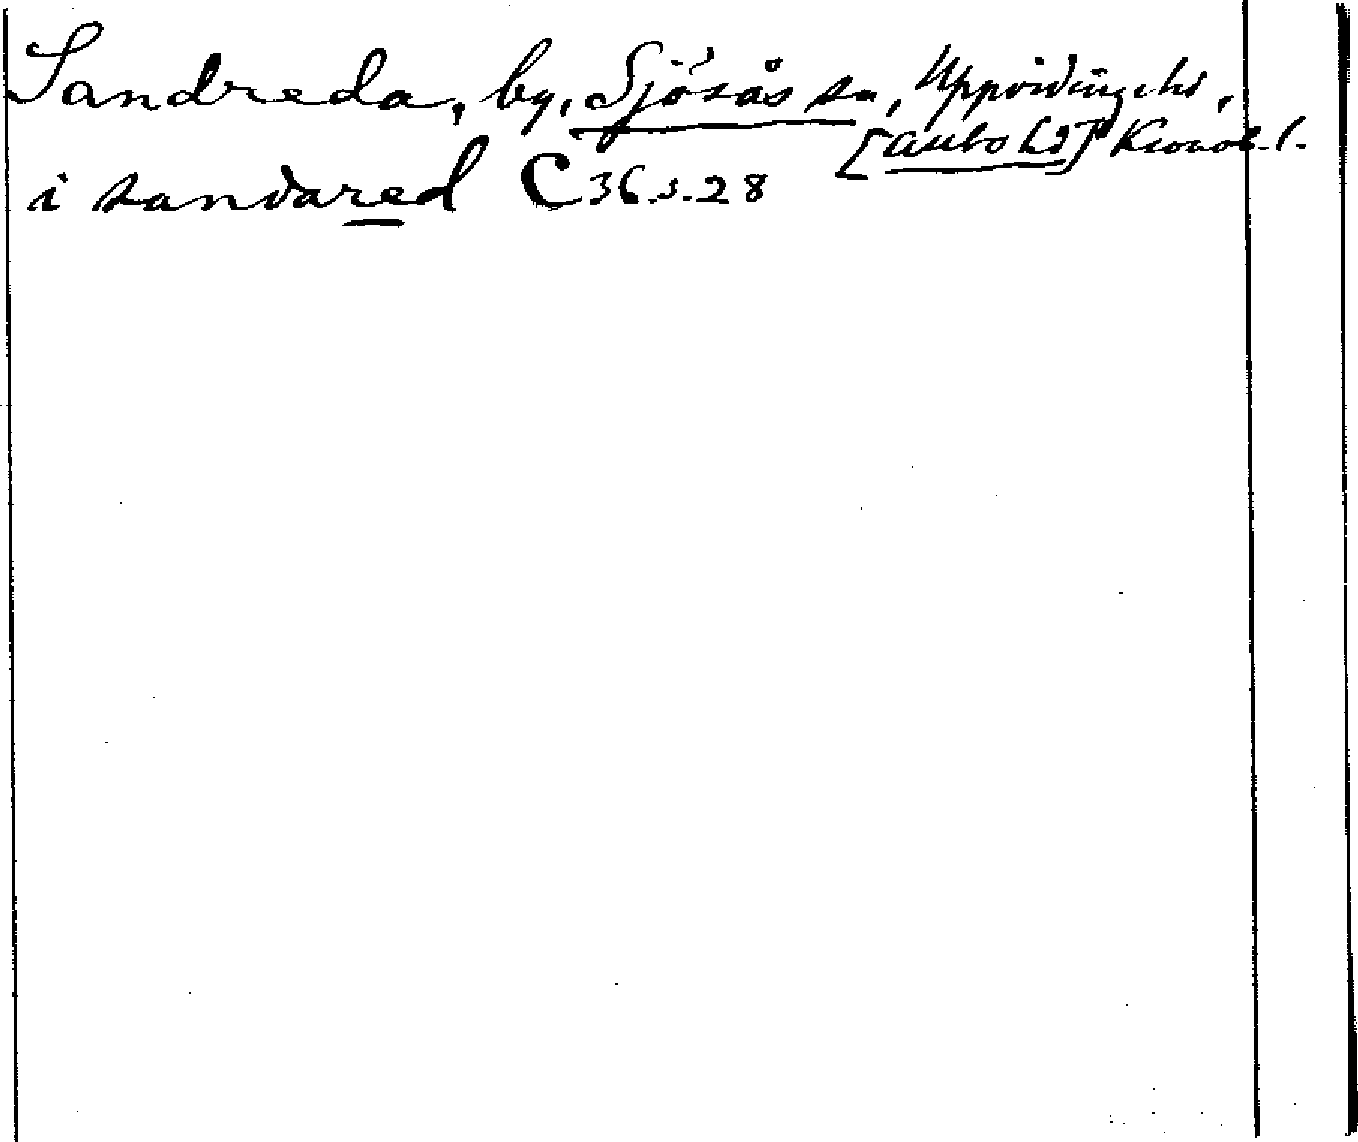 Sandreda, by, Sjösås sn, Uppvidinge hd,
[Allbo hd] Kronob. l.
i sandared C 36 s. 28